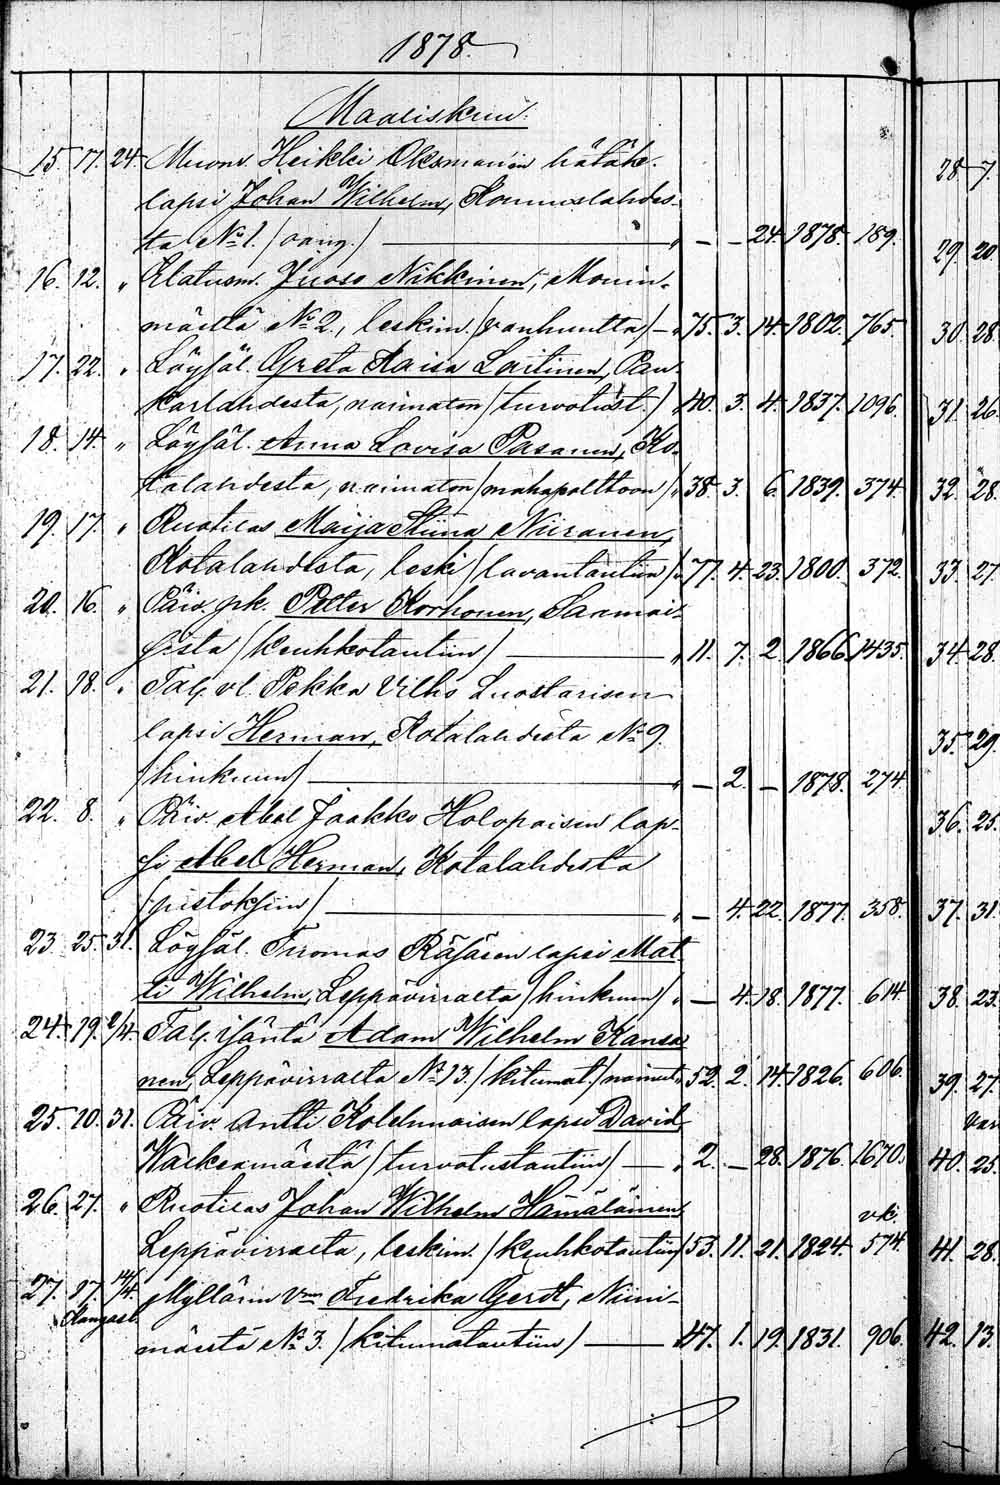 1878.
Maaliskuu.
15. 17. 24. Muonv. Heikki Oksman'in hätäk.
lapsi Johan Wilhelm, Konnuslahdes-
ta No 1. /vaing./ — " — — 24. 1878. 189.
16. 12. " Elatusm. Juoso Nikkinen, Monin-
mäeltä No 2., leskim. /vanhuutta/ — " 75. 3. 14. 1802. 765.
17. 22. " Löysäl. Greta Kaisa Laitinen, Pau-
karlahdesta, naimaton /turvotust./ 40. 3. 4. 1837. 1096.
18. 14. " Löysäl. Anna Lovisa Pasanen, Ko-
talahdesta, naimaton /mahapolttoon/ " 38. 3. 6. 1839. 374.
19. 17. " Ruotilas Maija Stiina Niiranen,
Kotalahdesta, leski /lavantautiin/ " 77. 4. 23. 1800. 372.
20. 16. " Päiv. pk. Petter Korhonen, Saamai-
sista /keuhkotautiin/ — " 11. 7. 2. 1866. 1435.
21. 18. " Tal. vl. Pekka Vilho Luostarisen
lapsi Herman, Kotalahdesta No 9.
/hinkuun/ — " — 2. — 1878. 274.
22. 8. " Päiv. Abel Jaakko Holopaisen lap-
si Abel Herman, Kotalahdesta
/pistoksiin/ — " — 4. 22. 1877. 358.
23. 25. 31. Löysäl. Thomas Räsäsen lapsi Mat-
ti Wilhelm, Leppävirralta /hinkuun/ " — 4. 18. 1877. 614.
24. 19. 2/4. Tal. isäntä Adam Wilhelm Kansa-
nen, Leppävirralta No 13. /kitumat./ naimut " 52. 2. 14. 1826. 606.
25. 10. 31. Päiv. Antti Kolehmaisen lapsi David,
Waekermäestä /turvotustautiin/ — " 2. — 28. 1876. 1670.
26. 27. " Ruotilas Johan Wilhelm Hämäläinen, vk.
Leppävirralta, leskim. /keuhkotautiin/ 53. 11. 21. 1824. 574.
27. 17. 14/4. Myllärin vmo Fredrika Gerdt, Niini-
Kangasl. mäestä No 3. /kitumatautiin/ — 47. 1. 19. 1831. 906.
28. 7.
29. 20.
30. 28.
31. 26.
32. 28.
33. 27.
34. 28.
35. 29.
36. 25.
37. 31.
38. 23.
39. 27.
Var
40. 25.
41. 28.
42. 13.